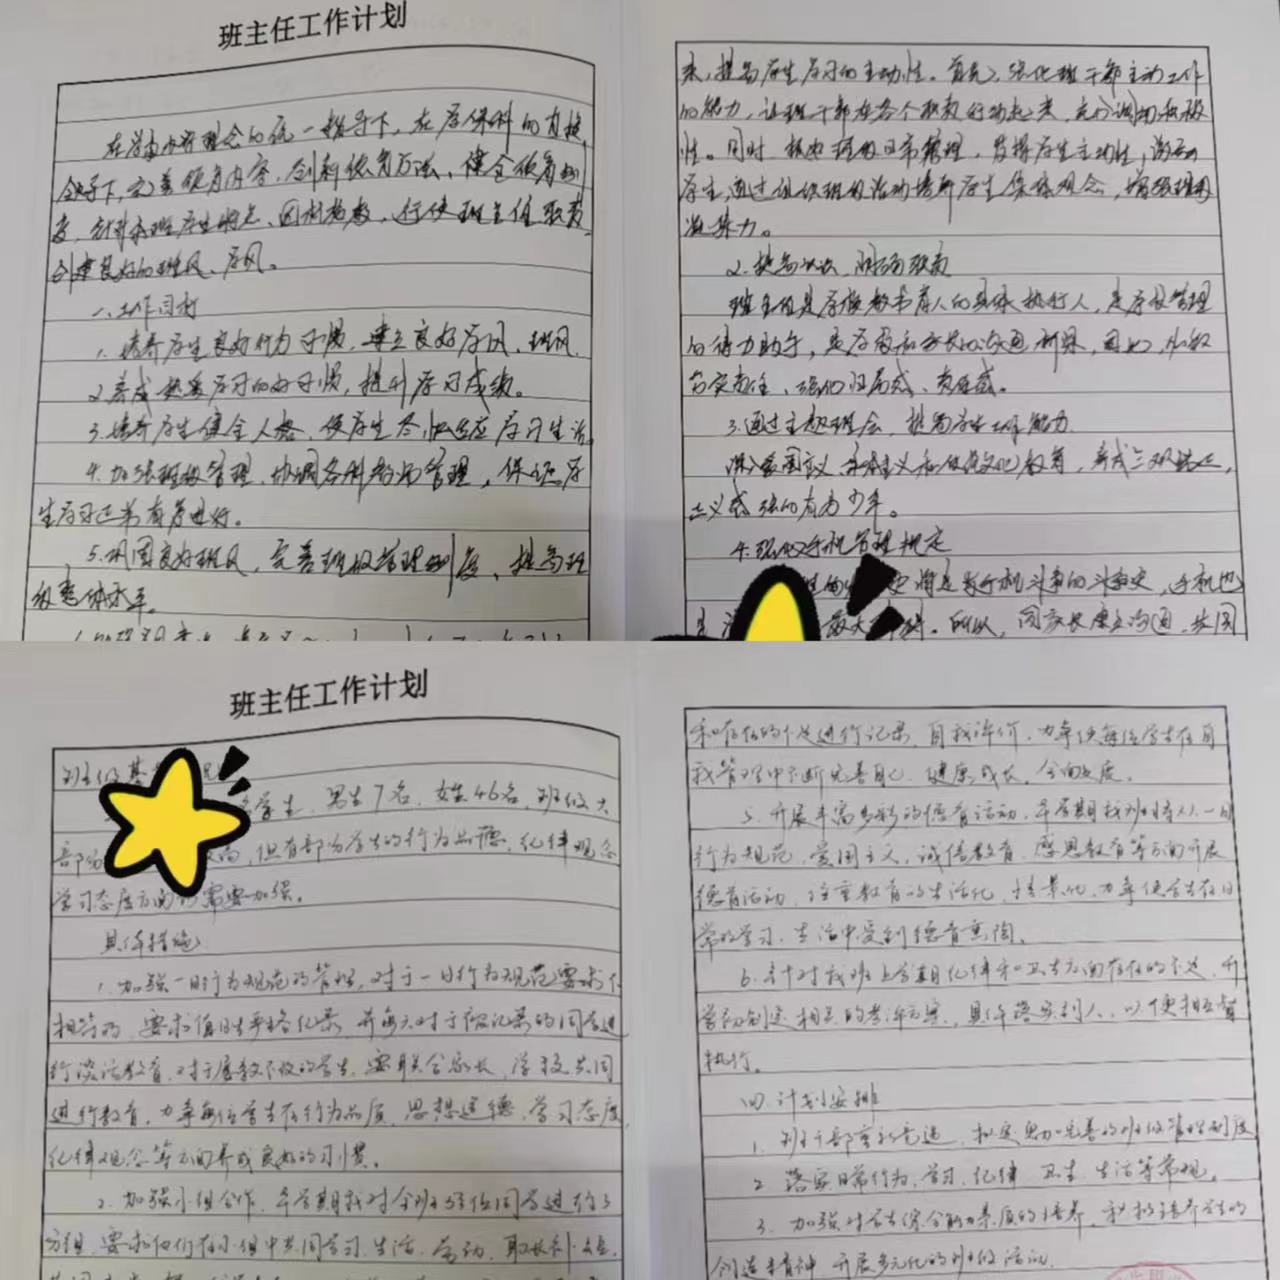 班主任工作计划
在学校办学理念的统一指导下，在学保科的直接
领导下，完善德育内容、创新德育方法、健全德育制
度，针对本班学生特点、因材施教，行使班主任职责
创建良好的班风、学风。
一、工作目标
1. 培养学生良好行为习惯，建立良好学风、班风
2. 养成热爱学习的好习惯，提升学习成绩。
3. 培养学生健全人格，使学生尽快适应学习生活
4. 加强班级管理，协调各科教师管理，保证学
生学习正常有序进行。
5. 巩固良好班风，完善班级管理制度、提高班
级整体水平。
来，提高学生学习的主动性。首先，强化班干部主动工作
的能力，让班干部在各个职责行动起来，充分调动积极
性。同时，班级的日常管理，发挥学生主动性，激励
学生，通过组织班级活动培养学生集体观念，增强班级
凝聚力。
2. 提高认识，明确职责
班主任是学校教书育人的具体执行人，是学校管理
的得力助手，是学校和家长的沟通桥梁，因此，
责任、强化归属感、责任感。
3. 通过主题班会，提高学生 能力
深入爱国主义、集体主义和传统文化教育，养成三观端正，
正义感强的有为少年。
4. 强化手机管理规定
将是与手机斗争的斗争史，手机也
最大 。所以，同家长建立沟通，共同
班主任工作计划
班级基
名学生，男生7名，女生46名，班级大
部分 ，但有部分学生的行为品德，纪律观念
学习态度方面 需要加强。
具体措施
1. 加强一日行为规范的管理，对于一日行为规范要求不
相符的，要求值日生严格纪录，并每天对于被记录的同学进
行谈话教育，对于屡教不改的学生，要联合家长，学校共同
进行教育，力争每位学生在行为品质，思想道德，学习态度
纪律观念等方面养成良好的习惯。
2. 加强小组合作，本学期我对全班53位同学进行了
分组，要求他们在小组中共同学习，生活，劳动，取长补短，
和存在的不足进行记录，自我评价，力争使每位学生在自
我管理中不断完善自己，健康成长，全面发展。
5. 开展丰富多彩的德育活动，本学期我班将从一日
行为规范，爱国主义，诚信教育，感恩教育等方面开展
德育活动，注重教育的生活化，情景化，力争使学生在日
常的学习，生活中受到德育熏陶。
6. 针对我班上学期纪律和卫生方面存在的不足，开
学初制定相应的考评方案，具体落实到人，以便相互督
执行。
四. 计划安排
1. 班干部重新竞选，拟定更加完善的班级管理制度
2. 落实日常行为，学习，纪律，卫生，生活等常规。
3. 加强对学生综合能力素质的培养，积极培养学生的
创造精神，开展多元化的班级活动